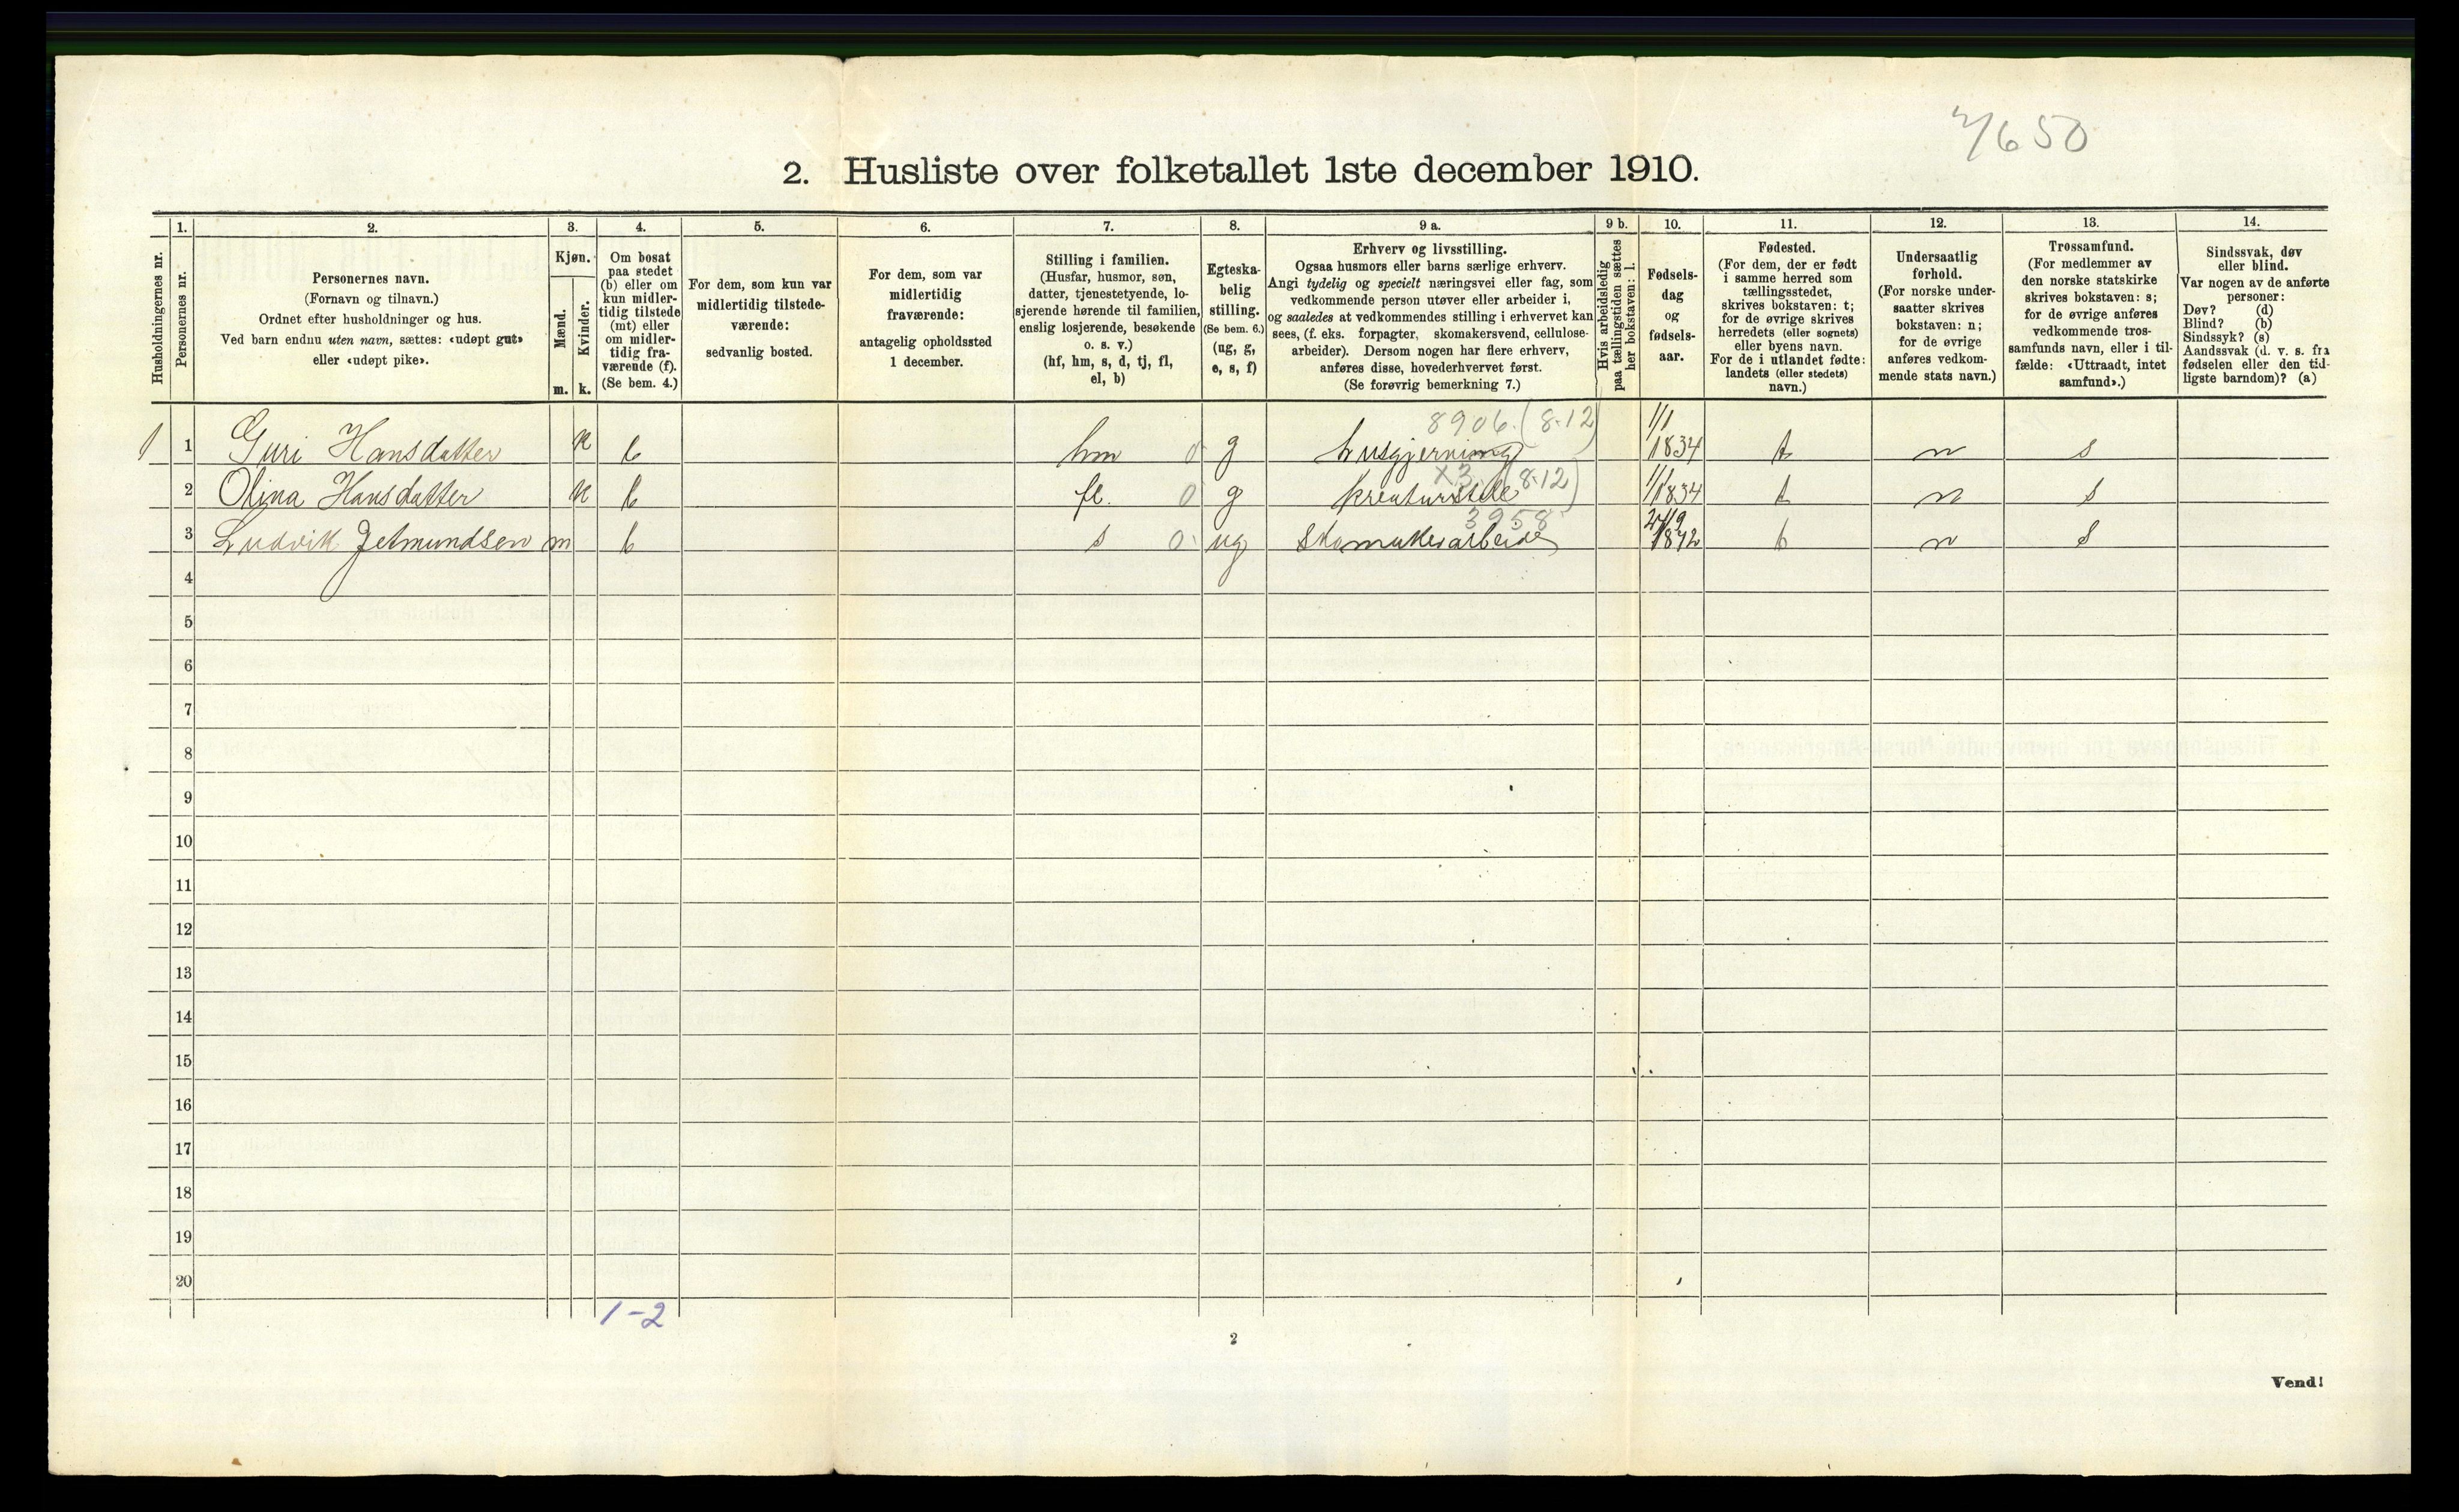 4/650
2. Husliste over folketallet 1ste december 1910.
Husholdningernes nr.
1.
Personernes nr.
2.
Personernes navn.
(Fornavn og tilnavn.)
Ordnet efter husholdninger og hus.
Ved barn endnu uten navn, sættes: «udøpt gut»
eller «udøpt pike».
3.
Kjøn.
Mænd.
Kvinder.
m. k.
4.
Om bosat
paa stedet
(b) eller om
kun midler-
tidig tilstede
(mt) eller
om midler-
tidig fra-
værende (f).
(Se bem. 4.)
5.
For dem, som kun var
midlertidig tilstede-
værende:
sedvanlig bosted.
6.
For dem, som var
midlertidig
fraværende:
antagelig opholdssted
1 december.
7.
Stilling i familien.
(Husfar, husmor, søn,
datter, tjenestetyende, lo-
sjerende hørende til familien,
enslig losjerende, besøkende
o. s. v.)
(hf, hm, s, d, tj, fl,
el, b)
8.
Egteska-
belig
stilling.
(Se bem. 6.)
(ug, g,
e, s, f)
9 a.
Erhverv og livsstilling.
Ogsaa husmors eller barns særlige erhverv.
Angi tydelig og specielt næringsvei eller fag, som
vedkommende person utøver eller arbeider i,
og saaledes at vedkommendes stilling i erhvervet kan
sees, (f. eks. forpagter, skomakersvend, cellulose-
arbeider). Dersom nogen har flere erhverv,
anføres disse, hovederhvervet først.
(Se forøvrig bemerkning 7.)
9 b.
Hvis arbeidsledig
paa tællingstiden sættes
her bokstaven: l.
10.
Fødsels-
dag
og
fødsels-
aar.
11.
Fødested.
(For dem, der er født
i samme herred som
tællingsstedet,
skrives bokstaven: t;
for de øvrige skrives
herredets (eller sognets)
eller byens navn.
For de i utlandet fødte:
landets (eller stedets)
navn.)
12.
Undersaatlig
forhold.
(For norske under-
saatter skrives
bokstaven: n;
for de øvrige
anføres vedkom-
mende stats navn.)
13.
Trossamfund.
(For medlemmer av
den norske statskirke
skrives bokstaven: s;
for de øvrige anføres
vedkommende tros-
samfunds navn, eller i til-
fælde: «Uttraadt, intet
samfund».)
14.
Sindssvak, døv
eller blind.
Var nogen av de anførte
personer:
Døv? (d)
Blind? (b)
Sindssyk? (s)
Aandssvak (d. v. s. fra
fødselen eller den tid-
ligste barndom)? (a)
8906. (8.12)
1 1 Guri Hansdatter k b hm 0 g husgjerning 1/1 1834 t n s
X3. (8.12)
2 Olina Hansdatter k b fl. 0 g kreaturstel 1/1 1834 t n s
3958
3 Ludvik Jetmundsen m b s 0 ug Skomakerarbeide 1872 t n s
4
5
6
7
8
9
10
11
12
13
14
15
16
17
18
19
20
1-2
2
Vend!